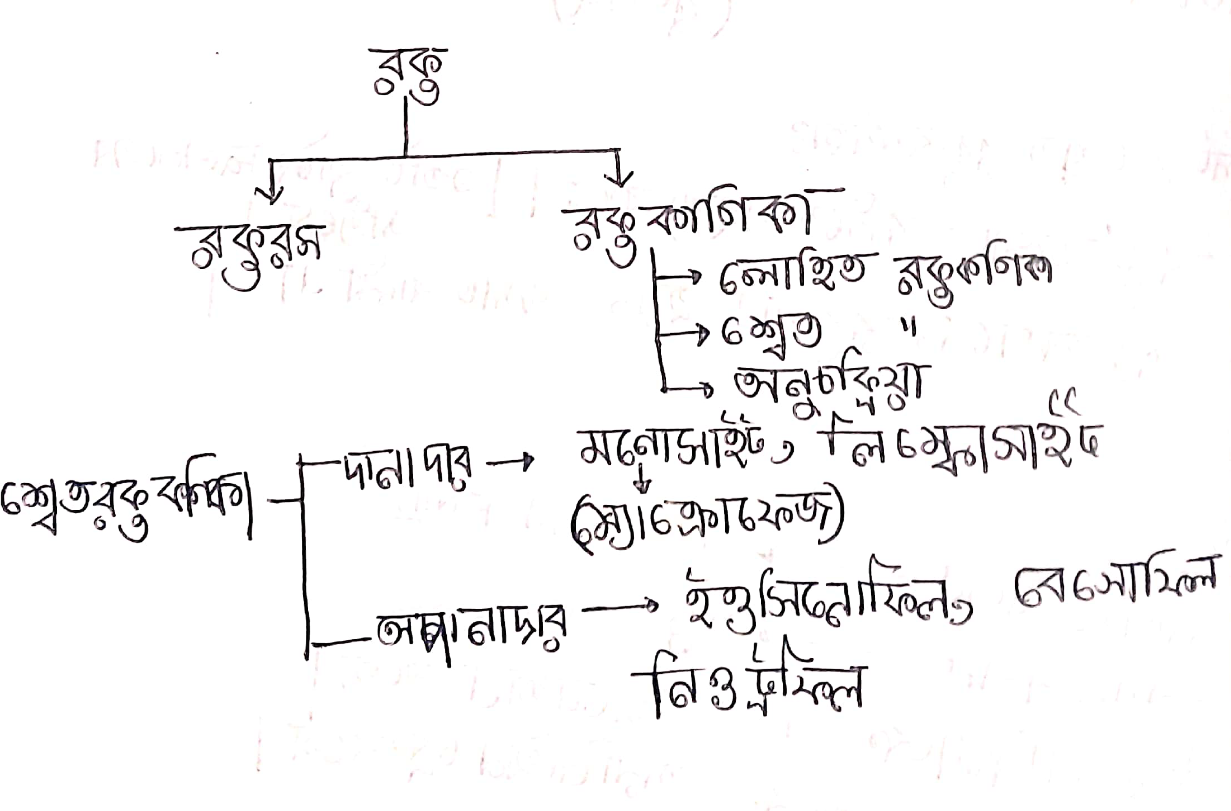 রক্ত
রক্তরস
রক্তকণিকা
লোহিত রক্তকণিকা
শ্বেত "
অনুচক্রিয়া
শ্বেতরক্ত কণিকা
দানাদার → মনোসাইট, লিম্ফোসাইট
(ম্যাক্রোফেজ)
অদানাদার → ইওসিনোফিল, বেসোফিল
নিওট্রফিল